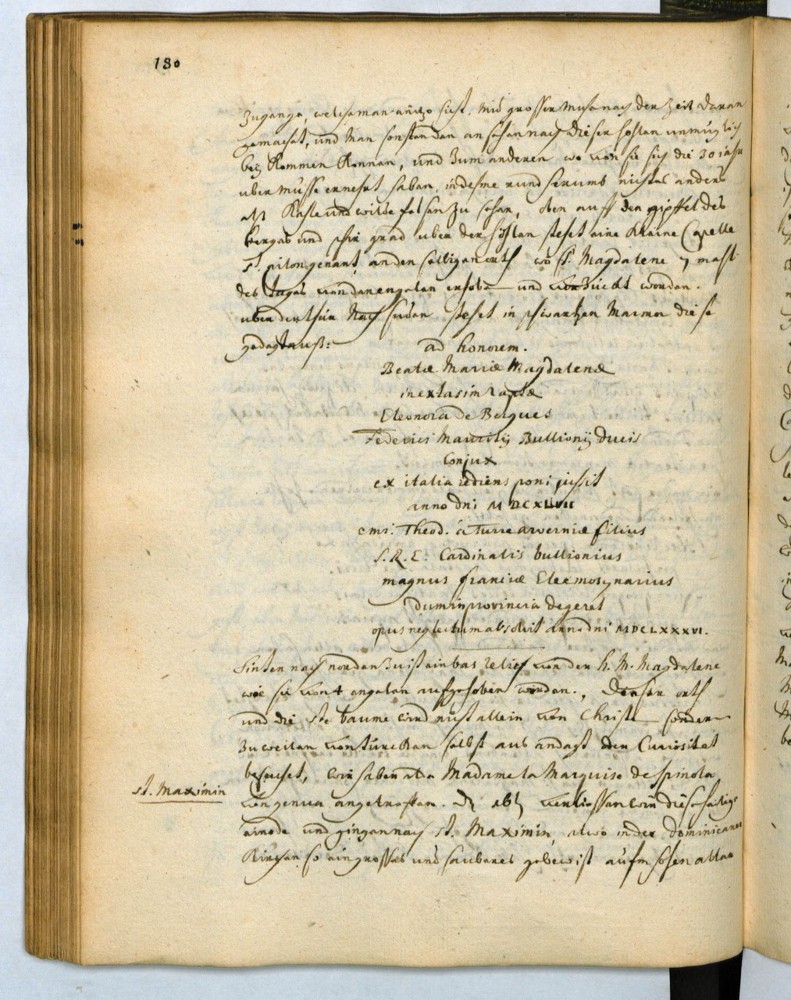 130
zugange, welche man anitzo sieht, mit grosser Muhe nach der Zeit daran
gemacht, und Man sonsten den ansehen nach dieser hohlen unmüglich
bey Kommen Konnen, und zum anderen wo von sie sich die 30 jahr
uber müsse ernehrt haben, indeme rund herumb nichtes anders
als Kahle und wilde felsen zu sehen, oben auff den gipffel des
berges und schir grad uber der hohlen stehet eine Kleine Capelle
St. pilon genant, an den selbigen orth wo St. Magdalene 7 mahl
des tages von den engelen erhoben und verzückt worden.
uber der thür nach suden stehet in schwartzen Marmor diese
gedachtnuß:
ad honorem.
Beatæ Mariæ Magdalenæ
in extasim raptæ
Eleonora de Bergues
Federici Mauritij Bullionij ducis
Conjux
ex italia rediens poni jussit
anno dni MDCXLVII
em: Theod. à turre arverniæ filius
S. R. E. Cardinalis bullionius
magnus franciæ Eleemosynarius
dum in provincia degeret
opus neglectum absolvit anno dni MDCLXXXVI.
hinten nach norden zu ist ein bas relief von der h. M. Magdalene
wie sie von 4 engelen aufgehoben worden., Dieser orth
und die ste baume wird nicht allein von Christen sondern
zuweilen von türcken selbst aus andacht oder Curiositet
besuchet, wir haben alda Madame la Marquise de Spinola
von genua angetroffen. den abend verliessen wir diese heilige
einöde und gingen nach St. Maximin, alwo in der Dominicaner
Kirchen so ein grosses und sauberes gebew ist aufm hohen altar
St. Maximin